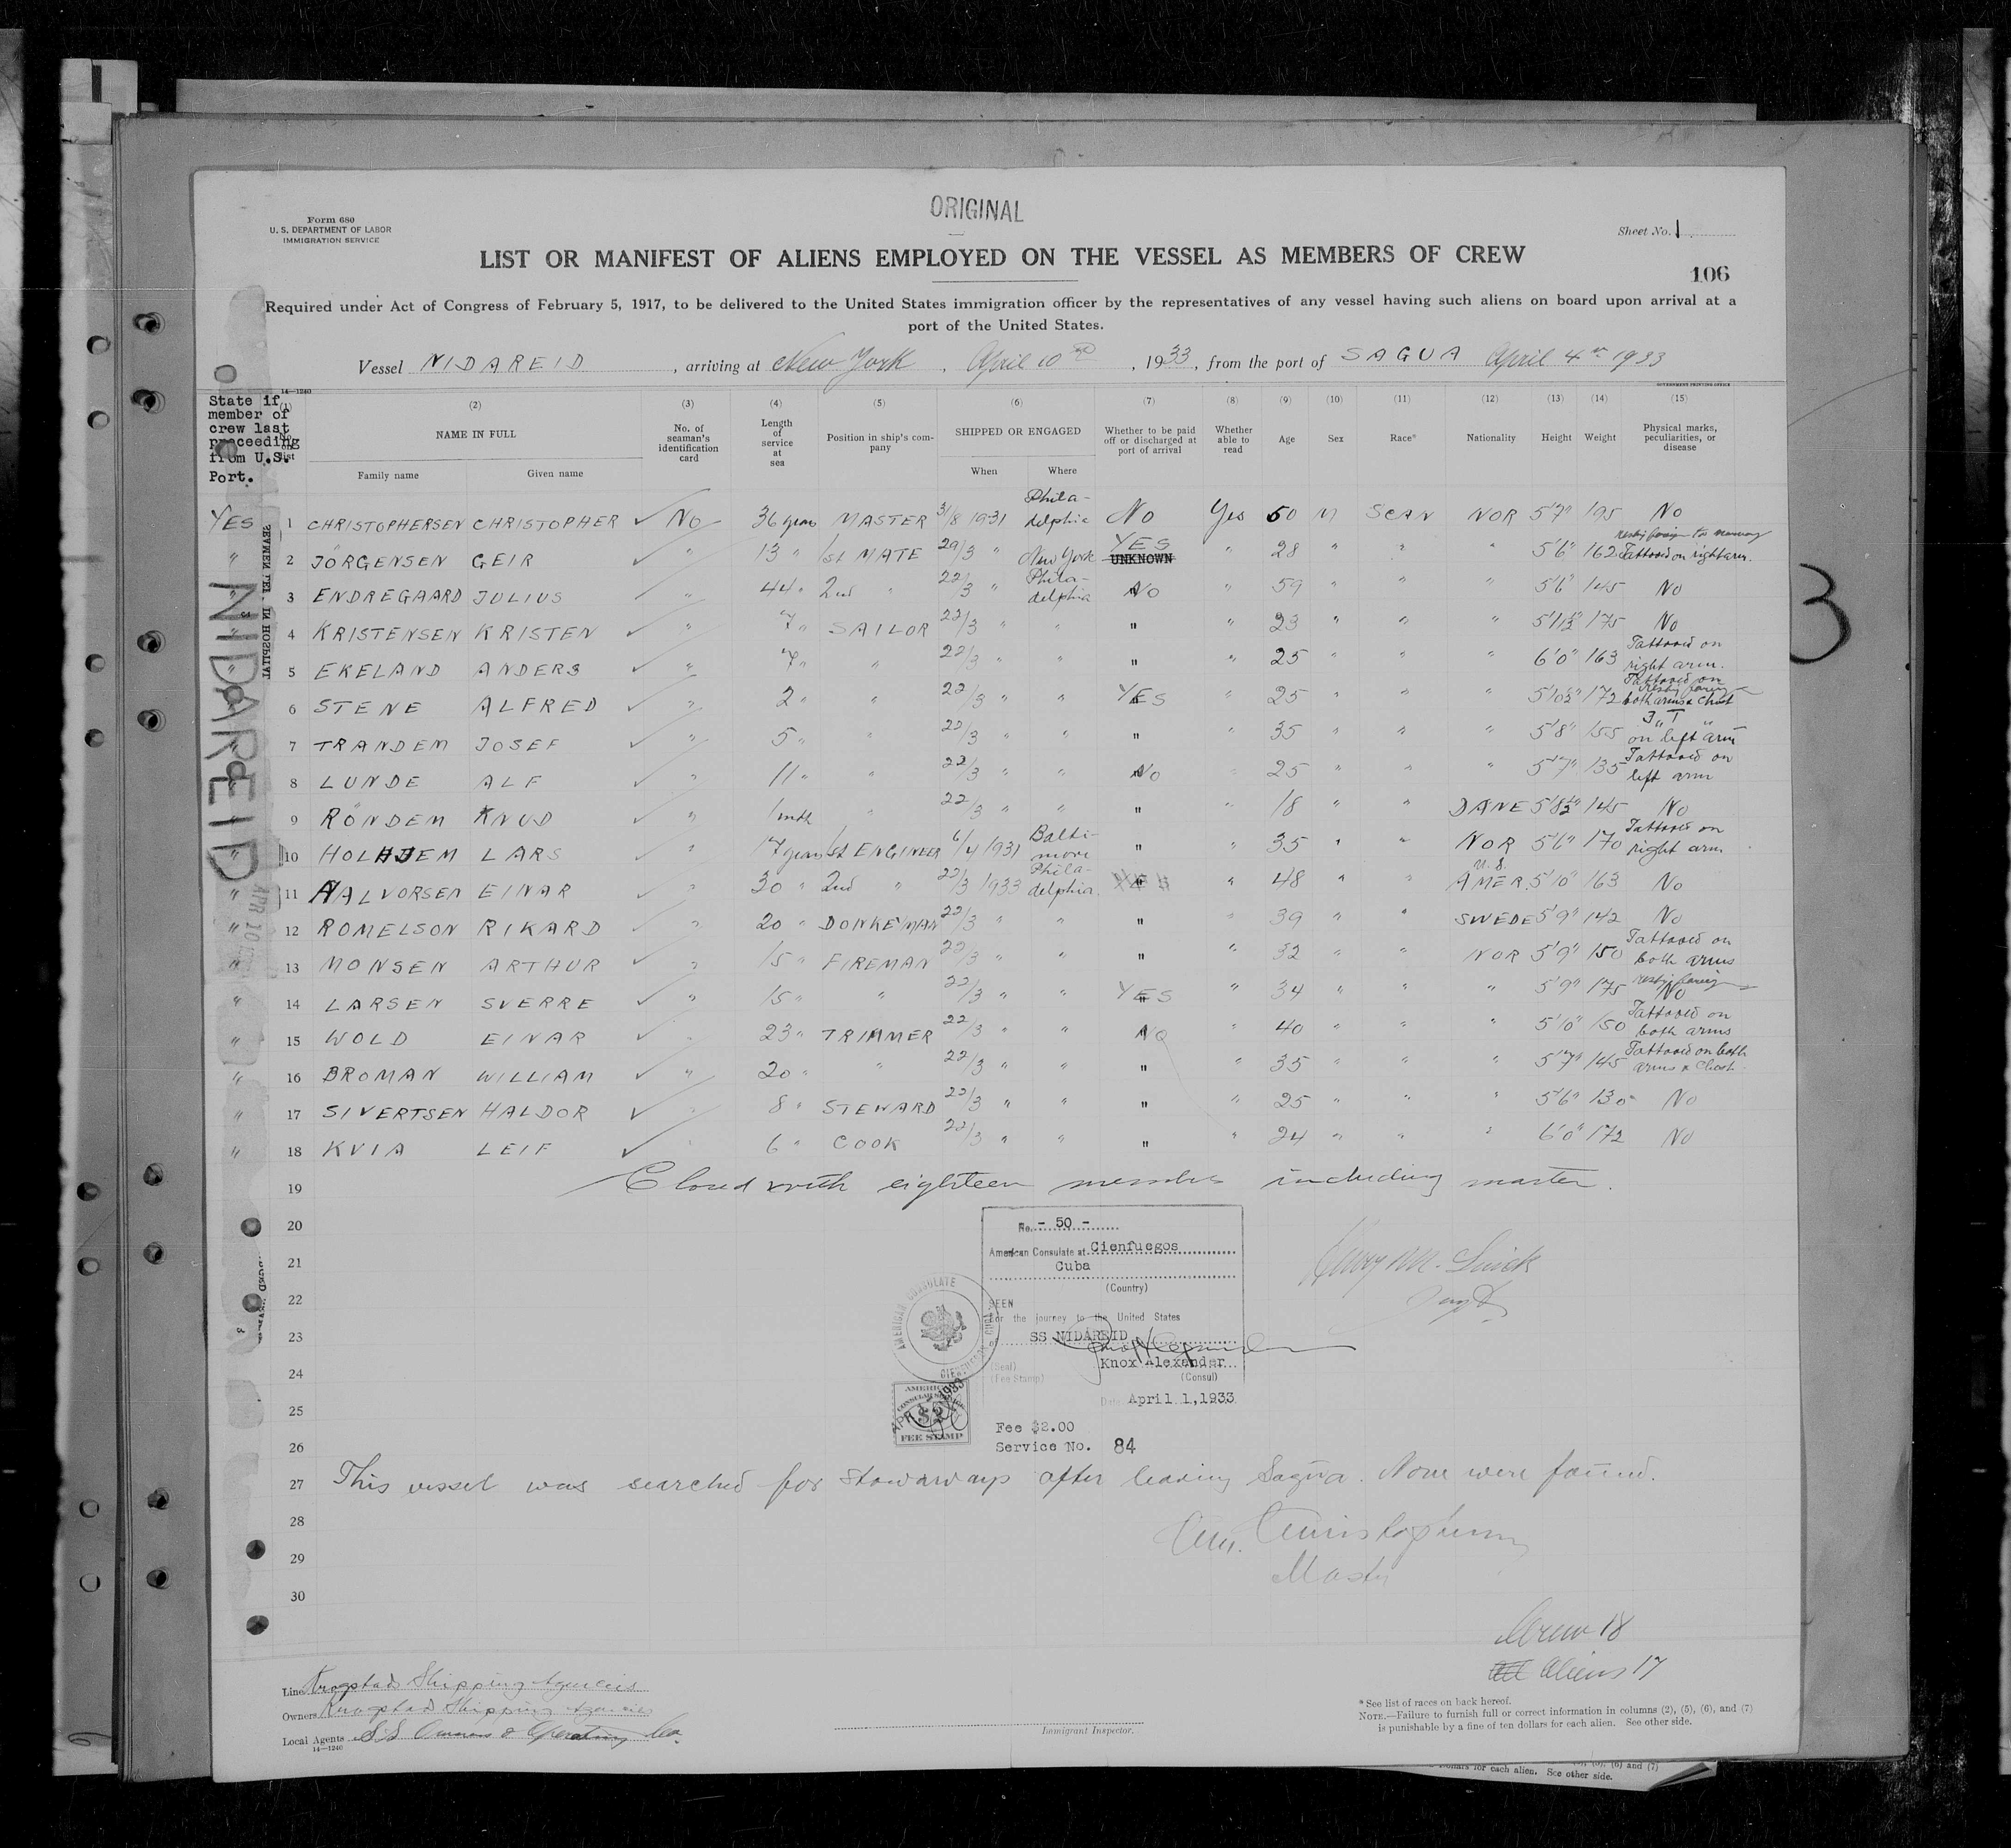 ORIGINAL
Form 680
U. S. DEPARTMENT OF LABOR
IMMIGRATION SERVICE
Sheet No. 1
LIST OR MANIFEST OF ALIENS EMPLOYED ON THE VESSEL AS MEMBERS OF CREW
106
Required under Act of Congress of February 5, 1917, to be delivered to the United States immigration officer by the representatives of any vessel having such aliens on board upon arrival at a
port of the United States.
Vessel NIDAREID , arriving at New York , April 10 , 1933 , from the port of SAGUA April 4 1933
14—1240
GOVERNMENT PRINTING OFFICE
State if member of crew last proceeding from U.S. Port.
(1) No. on list
(2) NAME IN FULL Family name Given name
(3) No. of seaman's identification card
(4) Length of service at sea
(5) Position in ship's company
(6) SHIPPED OR ENGAGED When Where
(7) Whether to be paid off or discharged at port of arrival
(8) Whether able to read
(9) Age
(10) Sex
(11) Race*
(12) Nationality
(13) Height
(14) Weight
(15) Physical marks, peculiarities, or disease
YES 1 CHRISTOPHERSEN CHRISTOPHER ✓ No 36 years MASTER 31/8 1931 Philadelphia No Yes 50 M SCAN NOR 5'7" 195 No
" 2 JÖRGENSEN GEIR ✓ " 13 " 1st MATE 29/3 " New York YES UNKNOWN " 28 " " " 5'6" 162 Tattooed on right arm.
" 3 ENDREGAARD JULIUS " 44 " 2nd " 22/3 " Philadelphia No " 59 " " " 5'6" 145 No
" 4 KRISTENSEN KRISTEN ✓ " 7 " SAILOR 22/3 " " " " 23 " " " 5'11½" 175 No
" 5 EKELAND ANDERS ✓ " 7 " " 22/3 " " " " 25 " " " 6'0" 163 Tattooed on right arm.
" 6 STENE ALFRED ✓ " 2 " " 22/3 " " YES " 25 " " " 5'10½" 172 Tattooed on both arms & chest
" 7 TRANDEM JOSEF ✓ " 5 " " 22/3 " " " " 35 " " " 5'8" 155 "J T" on left arm
" 8 LUNDE ALF ✓ " 11 " " 22/3 " " No " 25 " " " 5'7" 135 Tattooed on left arm
" 9 RÖNDEM KNUD ✓ " 1 mth " 22/3 " " " " 18 " " DANE 5'8½" 145 No
" 10 HOLHJEM LARS ✓ " 17 years 1st ENGINEER 6/4 1931 Baltimore " " 35 " " NOR 5'6" 170 Tattooed on right arm
" 11 HALVORSEN EINAR ✓ " 30 " 2nd " 22/3 1933 Philadelphia " " 48 " " U.S. AMER. 5'10" 163 No
" 12 ROMELSON RIKARD ✓ " 20 " DONKEYMAN 22/3 " " " " 39 " " SWEDE 5'9" 142 No
" 13 MONSEN ARTHUR ✓ " 15 " FIREMAN 22/3 " " " " 32 " " NOR 5'9" 150 Tattooed on both arms
" 14 LARSEN SVERRE ✓ " 15 " " 22/3 " " YES " 34 " " " 5'9" 175 No
" 15 WOLD EINAR ✓ " 23 " TRIMMER 22/3 " " NO " 40 " " " 5'10" 150 Tattooed on both arms
" 16 BROMAN WILLIAM ✓ " 20 " " 22/3 " " " " 35 " " " 5'7" 145 Tattooed on both arms & chest
" 17 SIVERTSEN HALDOR ✓ " 8 " STEWARD 22/3 " " " " 25 " " " 5'6" 130 No
" 18 KVIA LEIF ✓ " 6 " COOK 22/3 " " " " 24 " " " 6'0" 172 No
NIDAREID
3
19 Closed with eighteen members including master.
20
21
22
23
24
25
26
No. - 50 -
American Consulate at Cienfuegos
Cuba
(Country)
SEEN
For the journey to the United States
SS NIDAREID
Knox Alexander
(Seal)
(Fee Stamp)
(Consul)
Date April 1,1933
AMERICAN CONSULATE
FEE STAMP
Fee $2.00
Service No. 84
27 This vessel was searched for stowaways after leaving Sagua. None were found.
28
29
30
Master
Crew 18
All Aliens 17
Line Krogstad Shipping Agencies
Owners Krogstad Shipping Agencies
Local Agents S.S. Owners & Operating Co.
14—1240
Immigrant Inspector.
* See list of races on back hereof.
NOTE.—Failure to furnish full or correct information in columns (2), (5), (6), and (7)
is punishable by a fine of ten dollars for each alien. See other side.
(5), (6) and (7)
dollars for each alien. See other side.